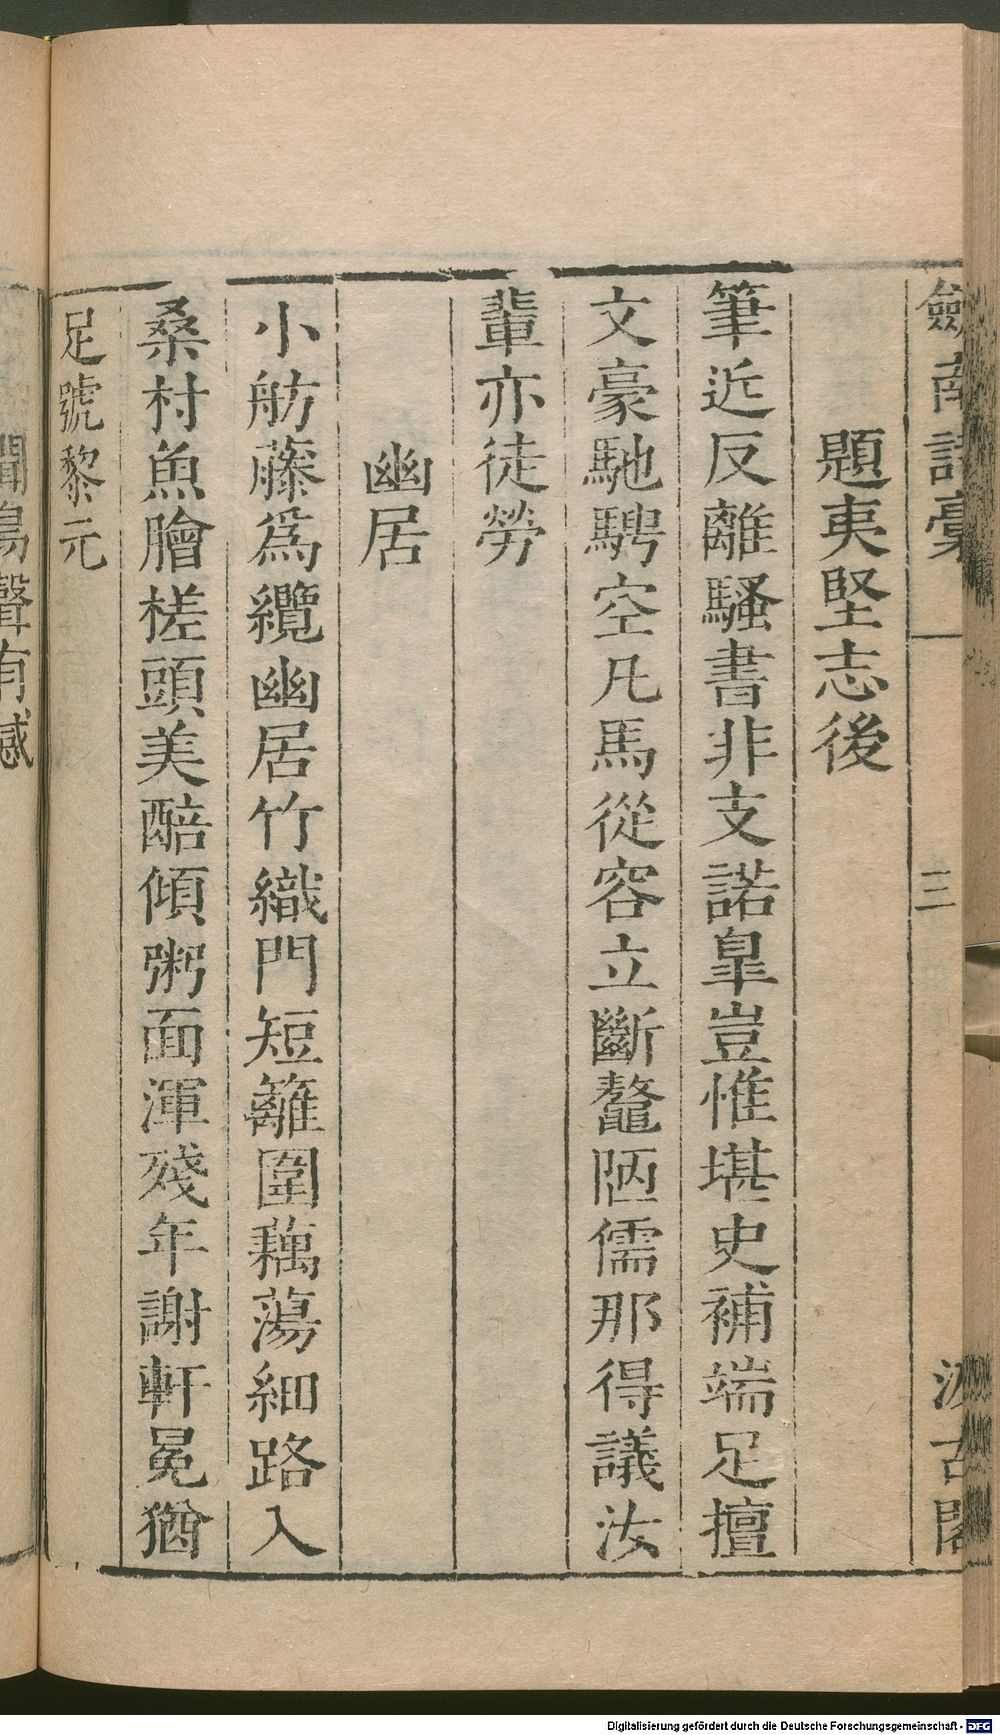 劍南詩稾
三
汲古閣
題夷堅志後
筆近反離騷書非支諾皐豈惟堪史補端足擅
文豪馳騁空凡馬從容立斷鼇陋儒那得議汝
輩亦徒勞
幽居
小舫藤爲纜幽居竹織門短籬圍藕蕩細路入
桑村魚膾槎頭美醅傾粥面渾殘年謝軒冕猶
足號黎元
聞鳥聲有感
Digitalisierung gefördert durch die Deutsche Forschungsgemeinschaft - DFG